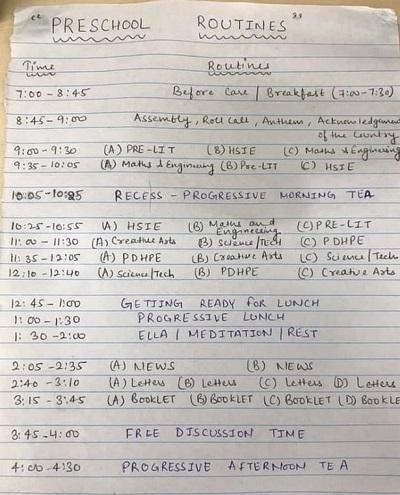 " PRESCHOOL ROUTINES "
Time Routines
7:00 - 8:45 Before Care | Breakfast (7:00-7:30)
8:45 - 9:00 Assembly, Roll Call, Anthem, Acknowledgement
of the Country
9:00 - 9:30 (A) PRE-LIT (B) HSIE (C) Maths & Engineering
9:35 - 10:05 (A) Maths & Engineering (B) Pre-LIT (C) HSIE
10:05 - 10:25 RECESS - PROGRESSIVE MORNING TEA
10:25 - 10:55 (A) HSIE (B) Maths and Engineering (C) PRE-LIT
11:00 - 11:30 (A) Creative Arts (B) Science/Tech (C) PDHPE
11:35 - 12:05 (A) PDHPE (B) Creative Arts (C) Science/Tech
12:10 - 12:40 (A) Science/Tech (B) PDHPE (C) Creative Arts
12:45 - 1:00 GETTING READY FOR LUNCH
1:00 - 1:30 PROGRESSIVE LUNCH
1:30 - 2:00 ELLA | MEDITATION | REST
2:05 - 2:35 (A) NEWS (B) NEWS
2:40 - 3:10 (A) Letters (B) Letters (C) Letters (D) Letters
3:15 - 3:45 (A) BOOKLET (B) BOOKLET (C) BOOKLET (D) BOOKLE
3:45 - 4:00 FREE DISCUSSION TIME
4:00 - 4:30 PROGRESSIVE AFTERNOON TEA